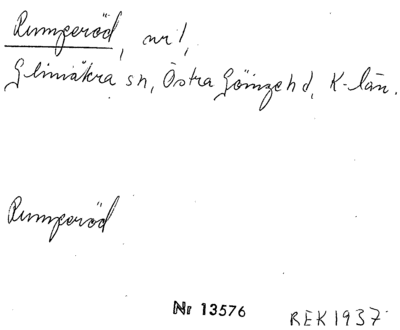 Rumperöd, nr 1,
Glimåkra sn, Östra Göinge hd, K-län.
Rumperöd
Nr 13576
REK 1937